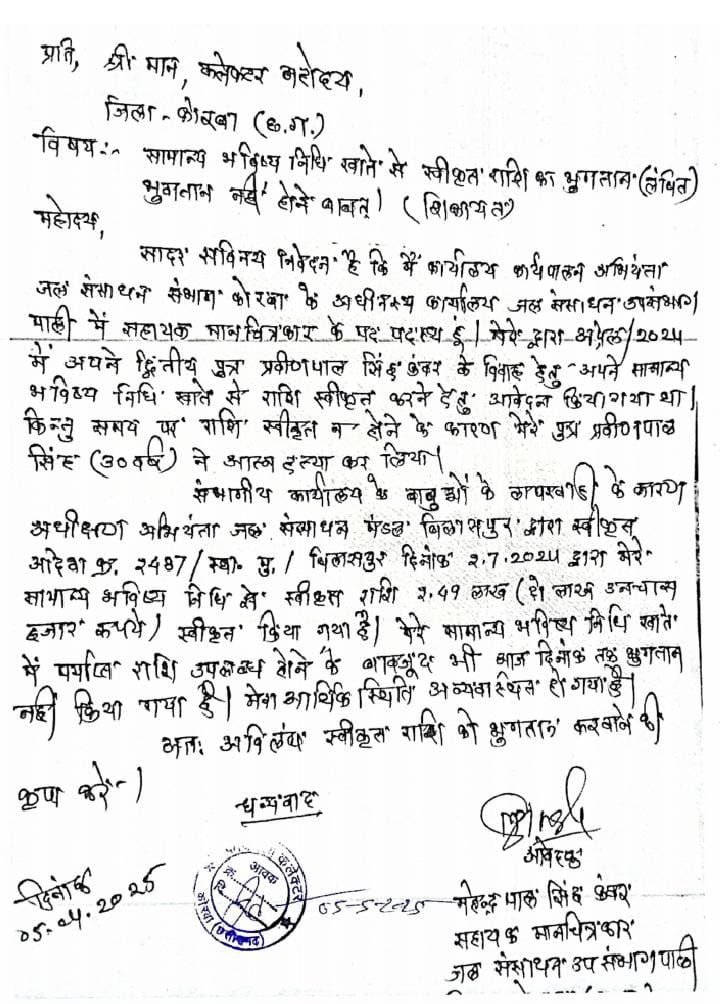 प्रति, श्री मान, कलेक्टर महोदय,
जिला - कोरबा (छ.ग.)
विषय:- सामान्य भविष्य निधि खाते से स्वीकृत राशि का भुगतान (लंबित)
भुगतान नहीं होने बाबत्। (शिकायत)
महोदय,
सादर सविनय निवेदन है कि मैं कार्यालय कार्यपालन अभियंता
जल संसाधन संभाग कोरबा के अधीनस्थ कार्यालय जल संसाधन उपसंभाग
पाली में सहायक मानचित्रकार के पद पदस्थ हूं। मेरे द्वारा अप्रेल/2024
में अपने द्वितीय पुत्र प्रवीणपाल सिंह कंवर के विवाह हेतु अपने सामान्य
भविष्य निधि खाते से राशि स्वीकृत करने हेतु आवेदन किया गया था।
किन्तु समय पर राशि स्वीकृत न होने के कारण मेरे पुत्र प्रवीणपाल
सिंह (30 वर्ष) ने आत्म हत्या कर लिया।
संभागीय कार्यालय के बाबुओं के लापरवाही के कारण
अधीक्षण अभियंता जल संसाधन मंडल बिलासपुर द्वारा स्वीकृत
आदेश क्र. 2487/स्था. मु./ बिलासपुर दिनांक 2.7.2024 द्वारा मेरे
सामान्य भविष्य निधि से स्वीकृत राशि 2.49 लाख (दो लाख उनचास
हजार रूपये) स्वीकृत किया गया है। मेरे सामान्य भविष्य निधि खाते
में पर्याप्त राशि उपलब्ध होने के बावजूद भी आज दिनांक तक भुगतान
नहीं किया गया है। मेरा आर्थिक स्थिति अव्यवस्थित हो गया है।
अतः अविलंब स्वीकृत राशि को भुगतान करवाने की
कृपा करें-।
धन्यवाद
आवेदक
दिनांक
05.04.2025
कलेक्टर
आवक
कोरबा (छत्तीसगढ़)
05-5-2025
महेन्द्र पाल सिंह कंवर
सहायक मानचित्रकार
जल संसाधन उप संभाग पाली